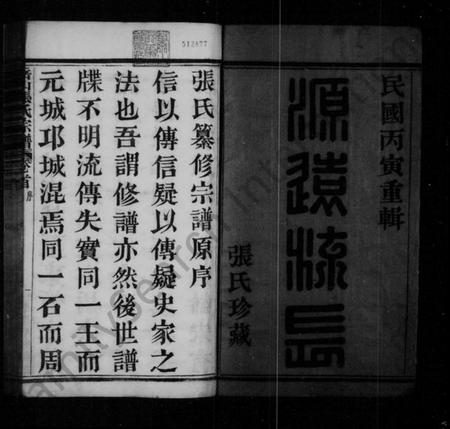 民國丙寅重輯
源遠流長
張氏珍藏
512877
張氏纂修宗譜原序
信以傳信疑以傳疑史家之
法也吾謂修譜亦然後世譜
牒不明流傳失實同一王而
元城邛城混焉同一石而周
張氏宗譜 卷首